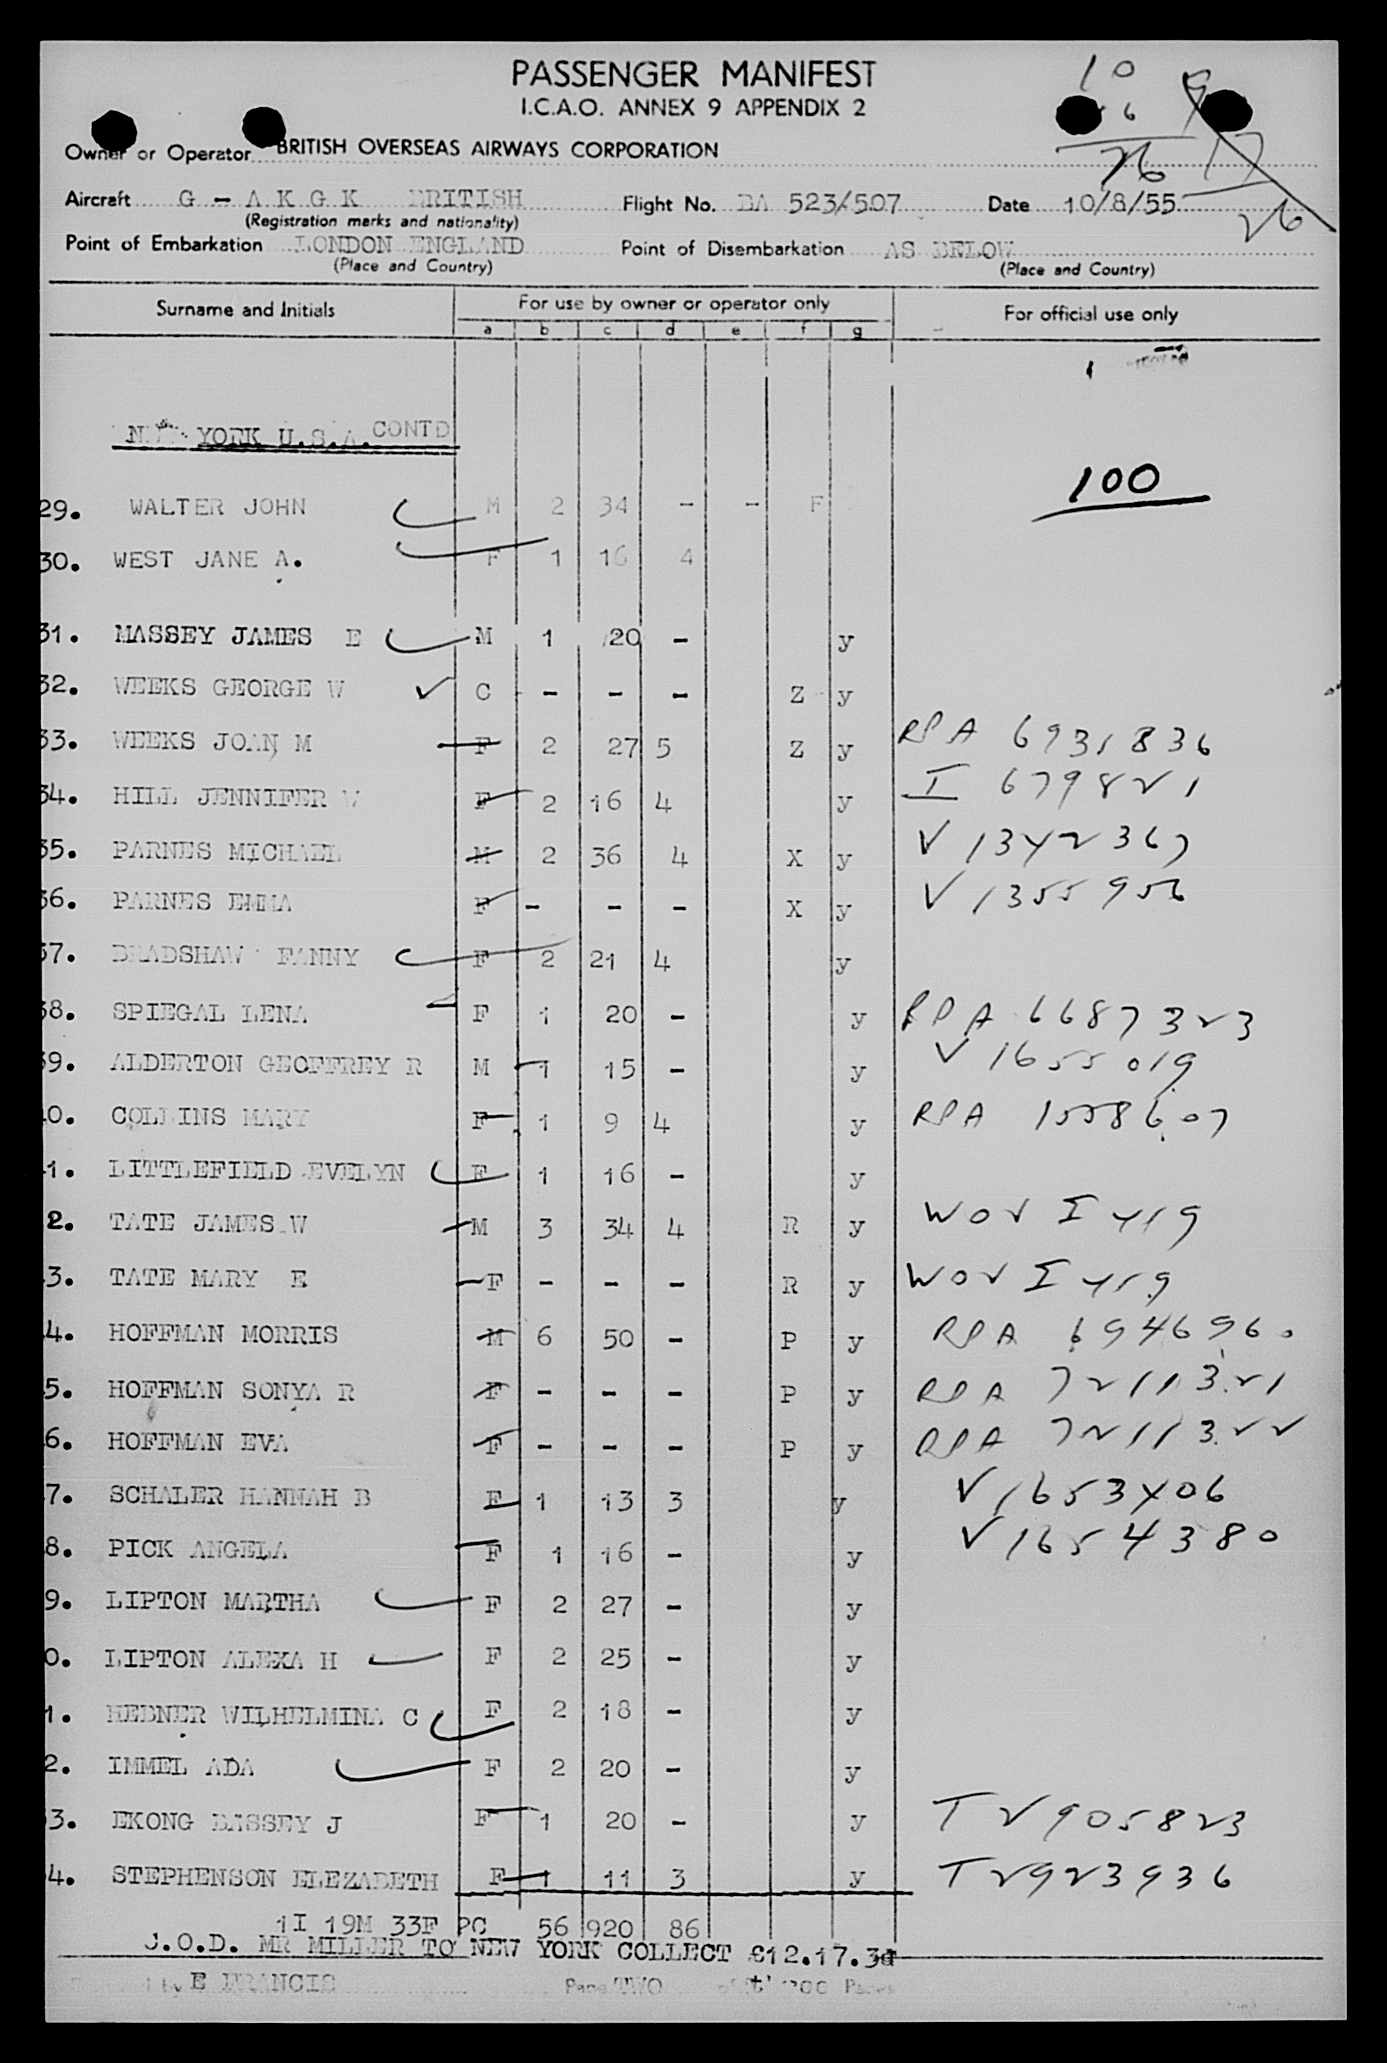 PASSENGER MANIFEST
I.C.A.O. ANNEX 9 APPENDIX 2
10
6
Owner or Operator BRITISH OVERSEAS AIRWAYS CORPORATION
Aircraft G - A K G K BRITISH Flight No. BA 523/507 Date 10/8/55
(Registration marks and nationality)
Point of Embarkation LONDON ENGLAND Point of Disembarkation AS BELOW
(Place and Country) (Place and Country)
Surname and Initials For use by owner or operator only For official use only
a b c d e f g
YORK U.S.A. CONTD
100
29. WALTER JOHN M 2 34 - - F
30. WEST JANE A. F 1 16 4
31. MASSEY JAMES E M 1 20 - y
32. WEEKS GEORGE W C - - - Z y
33. WEEKS JOAN M F 2 27 5 Z y RPA 6931836
34. HILL JENNIFER V F 2 16 4 y I 679821
35. PARNES MICHAEL M 2 36 4 X y V 1342367
36. PARNES EMMA F - - - X y V 1355956
37. BRADSHAW FANNY F 2 21 4 y
38. SPIEGAL LENA F 1 20 - y RPA 6687323
39. ALDERTON GEOFFREY R M 1 15 - y V 1655019
0. COLLINS MARY F 1 9 4 y RPA 1558607
1. LITTLEFIELD EVELYN F 1 16 - y
2. TATE JAMES W M 3 34 4 R y WOV I 419
3. TATE MARY E F - - - R y WOV I 419
4. HOFFMAN MORRIS M 6 50 - P y RPA 6946960
5. HOFFMAN SONYA R F - - - P y RPA 7211321
6. HOFFMAN EVA F - - - P y RPA 7211322
7. SCHALER HANNAH B F 1 13 3 y V 1653406
8. PICK ANGELA F 1 16 - y V 1654380
9. LIPTON MARTHA F 2 27 - y
0. LIPTON ALEXA H F 2 25 - y
1. HEBNER WILHELMINA C F 2 18 - y
2. IMMEL ADA F 2 20 - y
3. EKONG BASSEY J F 1 20 - y T 2905823
4. STEPHENSON ELEZABETH F 1 11 3 y T 2923936
1I 19M 33F 2C 56 920 86
C.O.D. MR MILLER TO NEW YORK COLLECT £12.17.3d
by E FRANCIS Page TWO of three Pages